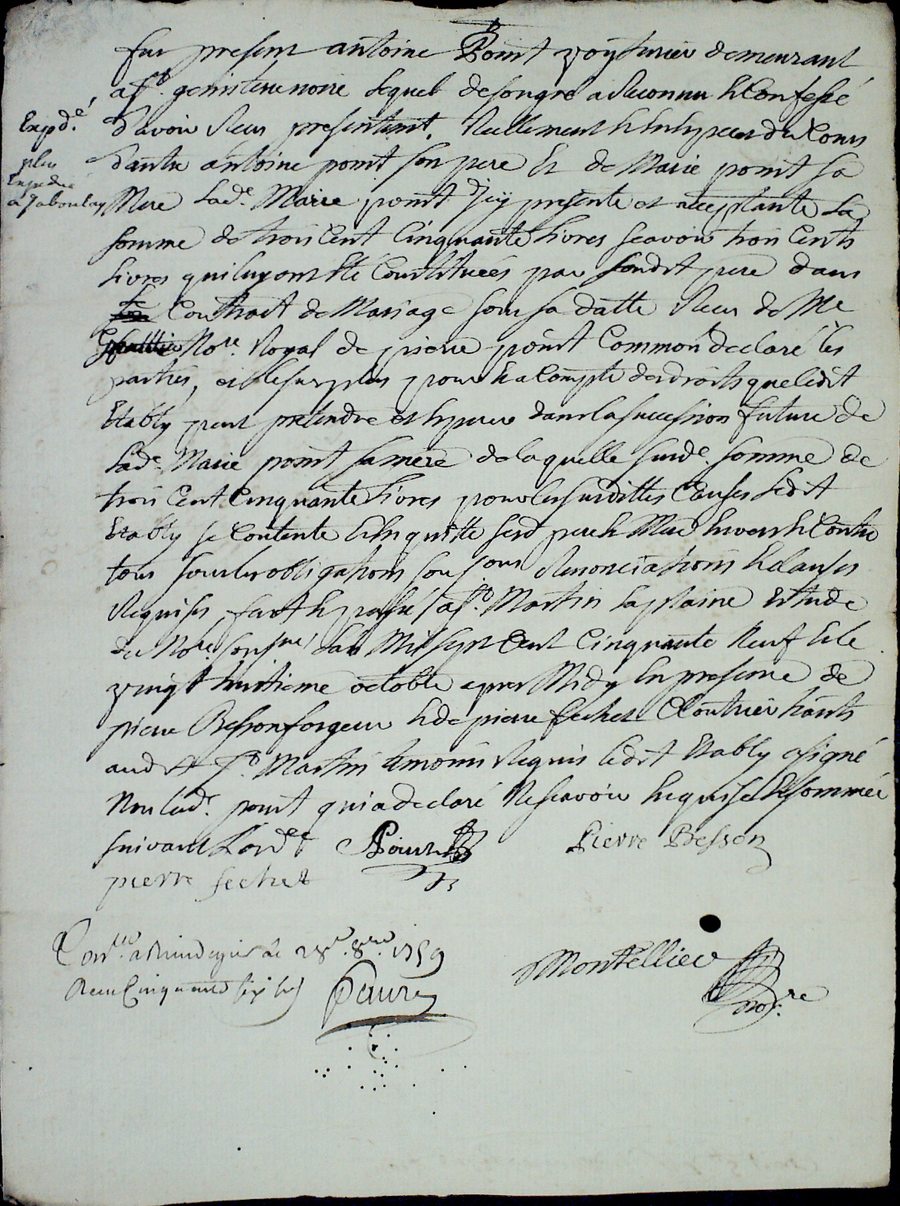 fut present antoine Point voyturier demeurant
a st. genis terre noire lequel de son gré a Reconnu et Confessé
Expd.é
d'avoir Reçu presentemt. Reellement et en especes du Cours
plus
d'autre antoine point son pere Et de Marie point sa
Expedié
Mere Lade. Marie point icy presente et acceptante La
a Jaboulay
somme de trois Cent Cinquante Livres scavoir trois Cents
Livres qui luy ont été Constituées par sondit pere dans
Contrat de Mariage sous sa datte Reçu de Me
Nore. Royal de pierre point Comme ont declaré les
parties, et le surplus pour et a Compte des droits que ledit
Etably peut pretendre et esperer dans la succession future de
Lade. Marie point sa mere de laquelle surde. somme de
trois Cent Cinquante Livres pour les susdittes Causes Ledit
Etably se Contente et en quitte sesd pere et Mere envers et Contre
tous sous les obligations soumissions Renonciations et Clauses
Requises, fait et passé a st. Martin la plaine Estude
du Nore. soussné. L'an Mil sept Cent Cinquante Neuf et le
vingt huitieme octobre apres Midy En presence de
pierre Besson forgeur et de pierre sechet Cloutier habts
audit st. Martin temoins Requis ledit Etably a signé
Non Lade. point qui a declaré Ne scavoir Enquise et sommée
suivant Lord.e
Point
Pierre Besson
pierre sechet
Conlle. a Rivedegier le 28e. 8bre. 1759
Reçu Cinquante six sols
Montellier
nore.